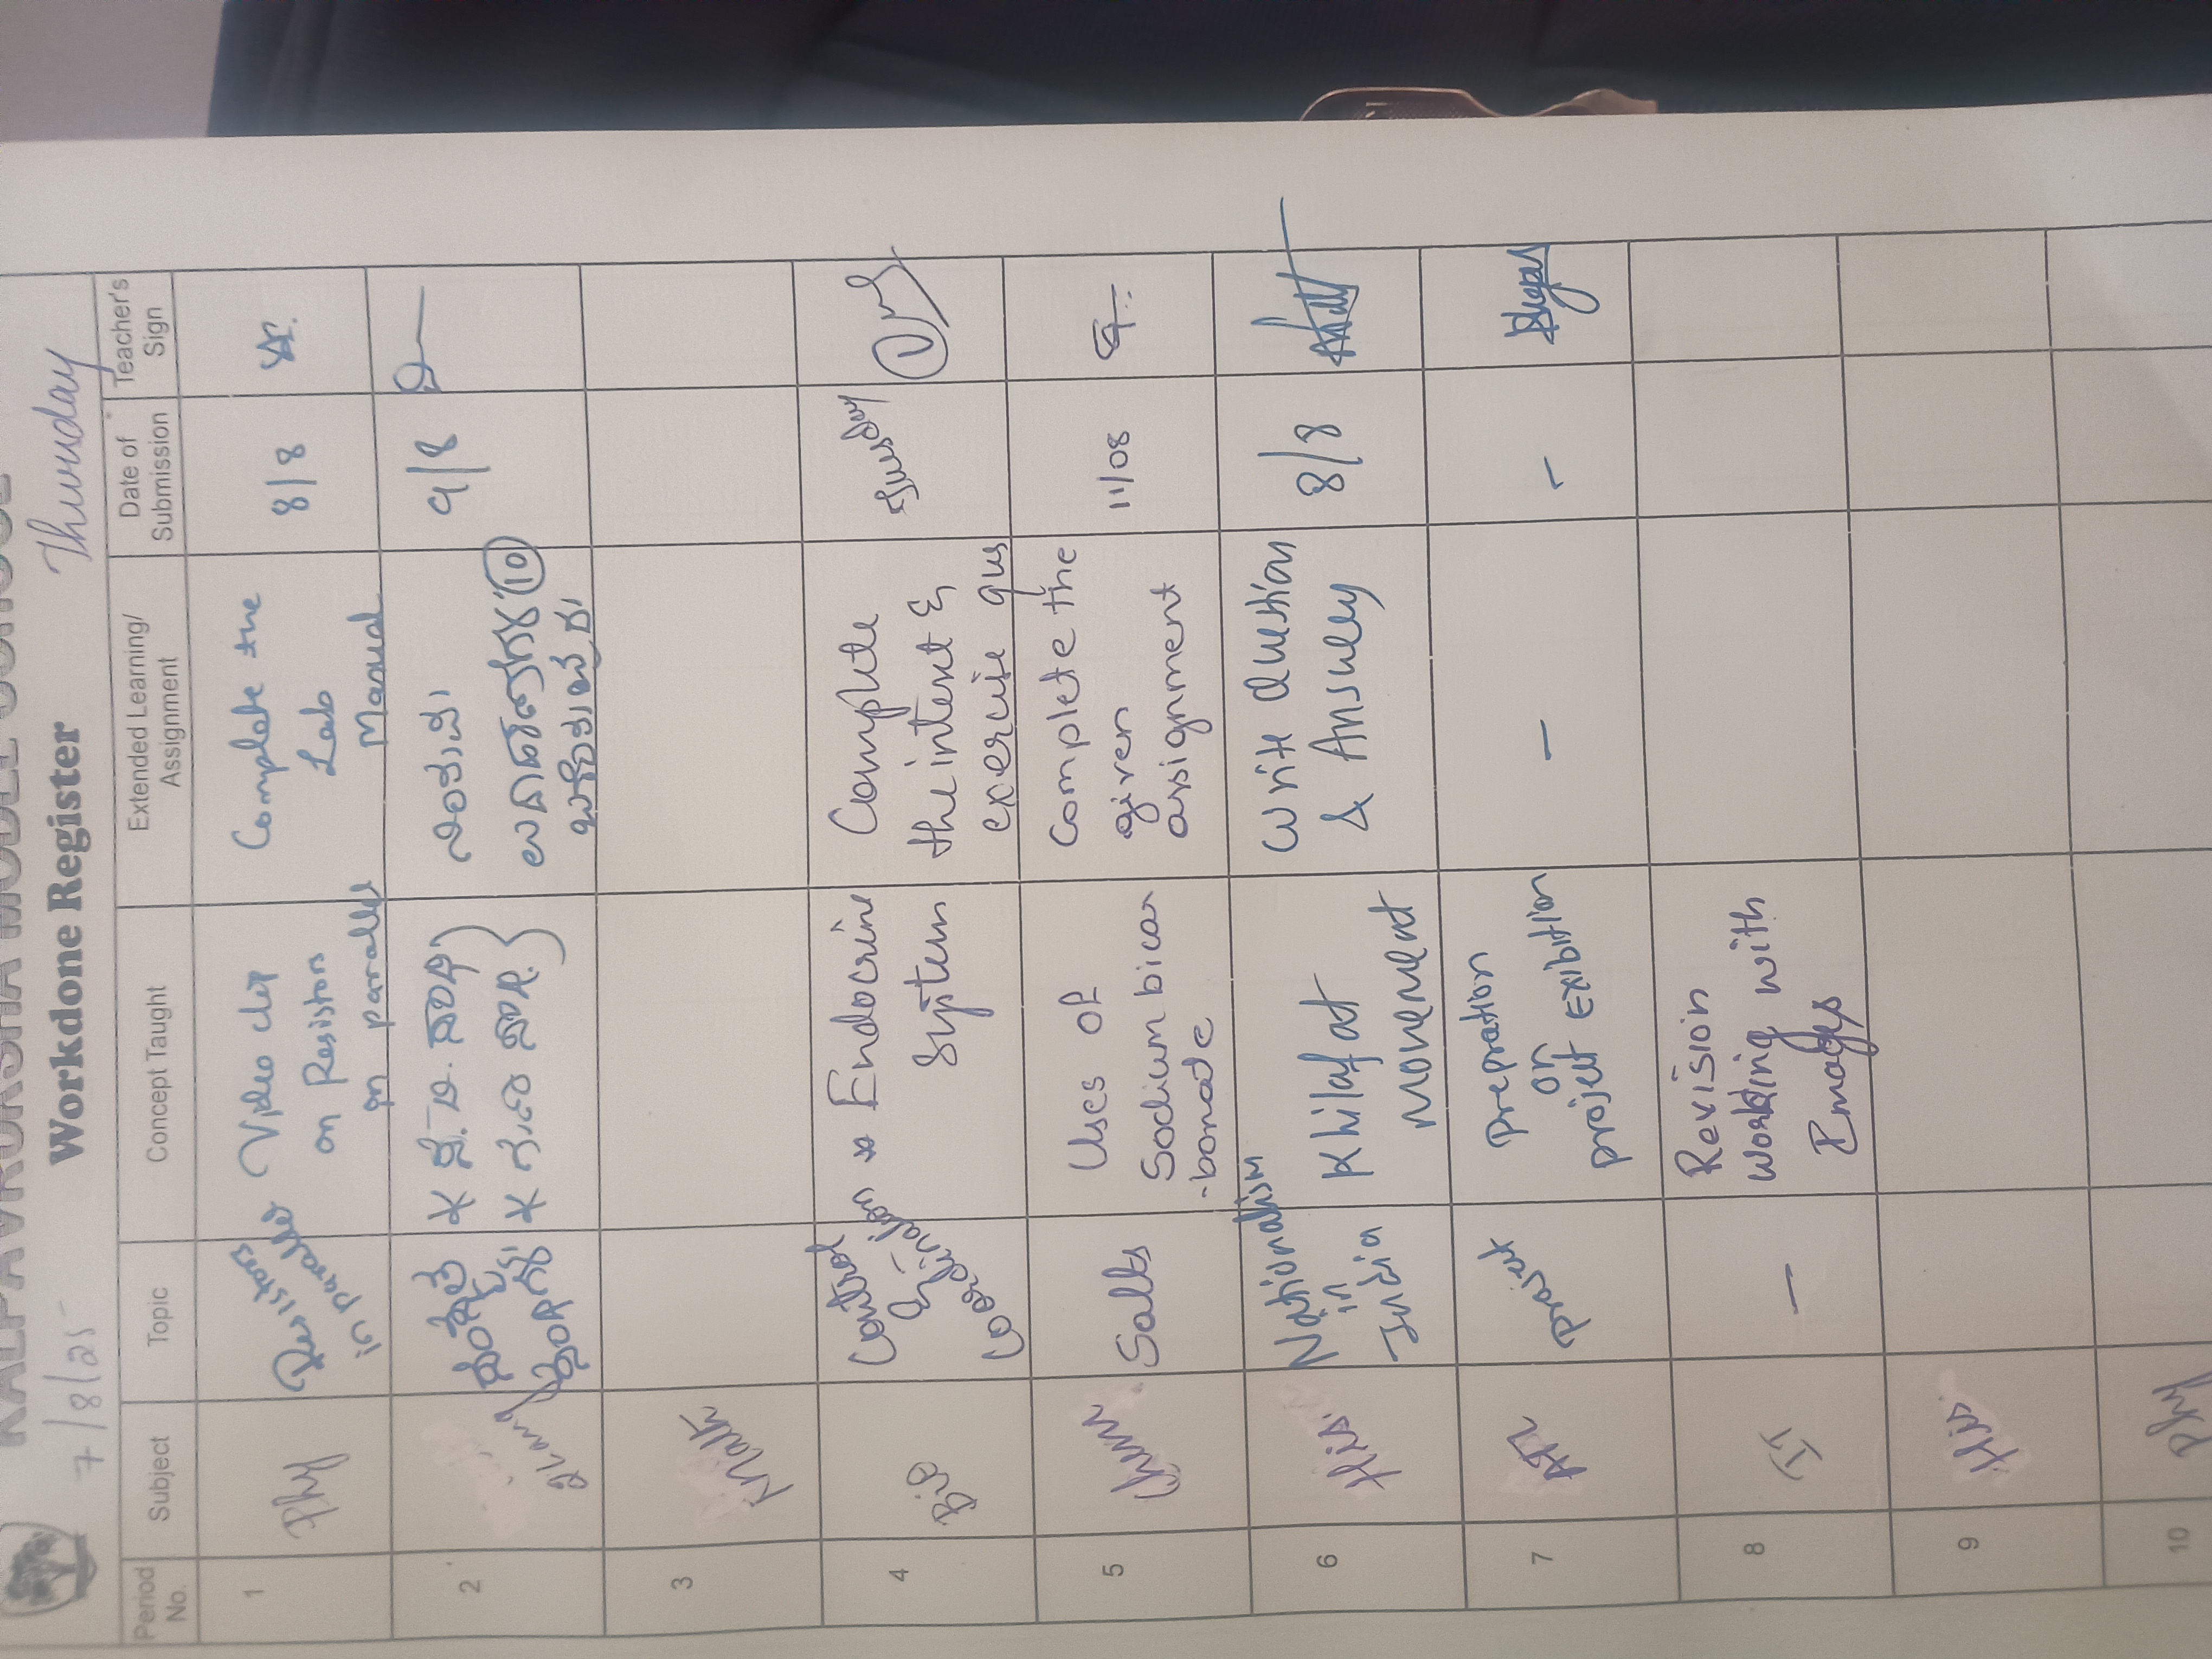 KALPAVRUKSHA MODEL SCHOOL
Workdone Register
7/8/25
Thursday
Period No. Subject Topic Concept Taught Extended Learning/ Assignment Date of Submission Teacher's Sign
1 Phy Resistors in parallel Video clip on Resistors in parallel Complete the Lab Manual 8/8
2 9/8
3 Math
4 Bio Control & Coordination * Endocrine System Complete the intext & exercise qus
5 Chem Salts Uses of Sodium bicar -bonate Complete the given assignment 11/08
6 His. Nationalism in India Khilafat movement Write Question & Answer 8/8
7 project Prepration on project Exibition - -
8 IT - Revision Working with Images
9 His.
10 Phy